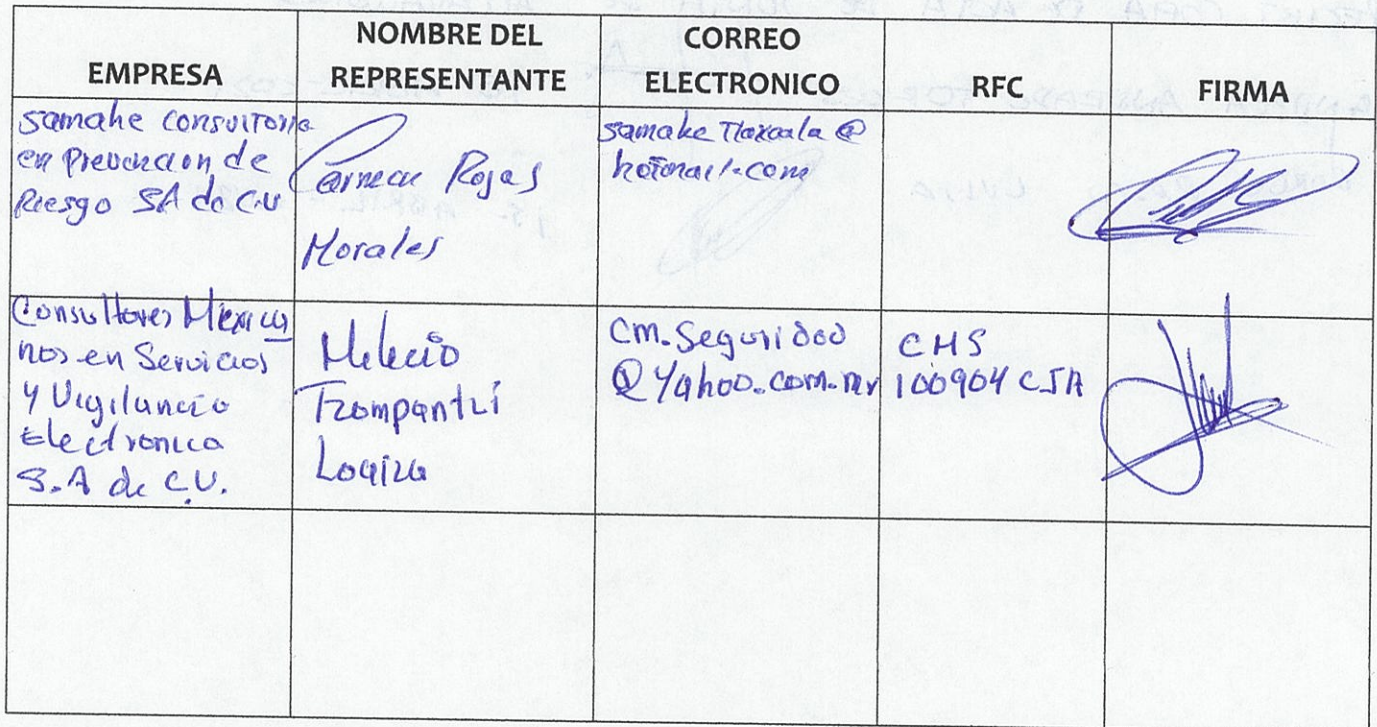 EMPRESA
NOMBRE DEL
REPRESENTANTE
CORREO
ELECTRONICO
RFC
FIRMA
Samake Consultoria
en Prevencion de
Riesgo SA de C.V
Carmen Rojas
Morales
Samake Tlaxcala @
hotmail.com
Consultores Mexica
nos en Servicios
y Vigilancia
Electronica
S.A de C.V.
Melecio
Tzompantzi
Loaiza
cm.Seguridad
@ Yahoo.com.mx
CMS
100904 CJA